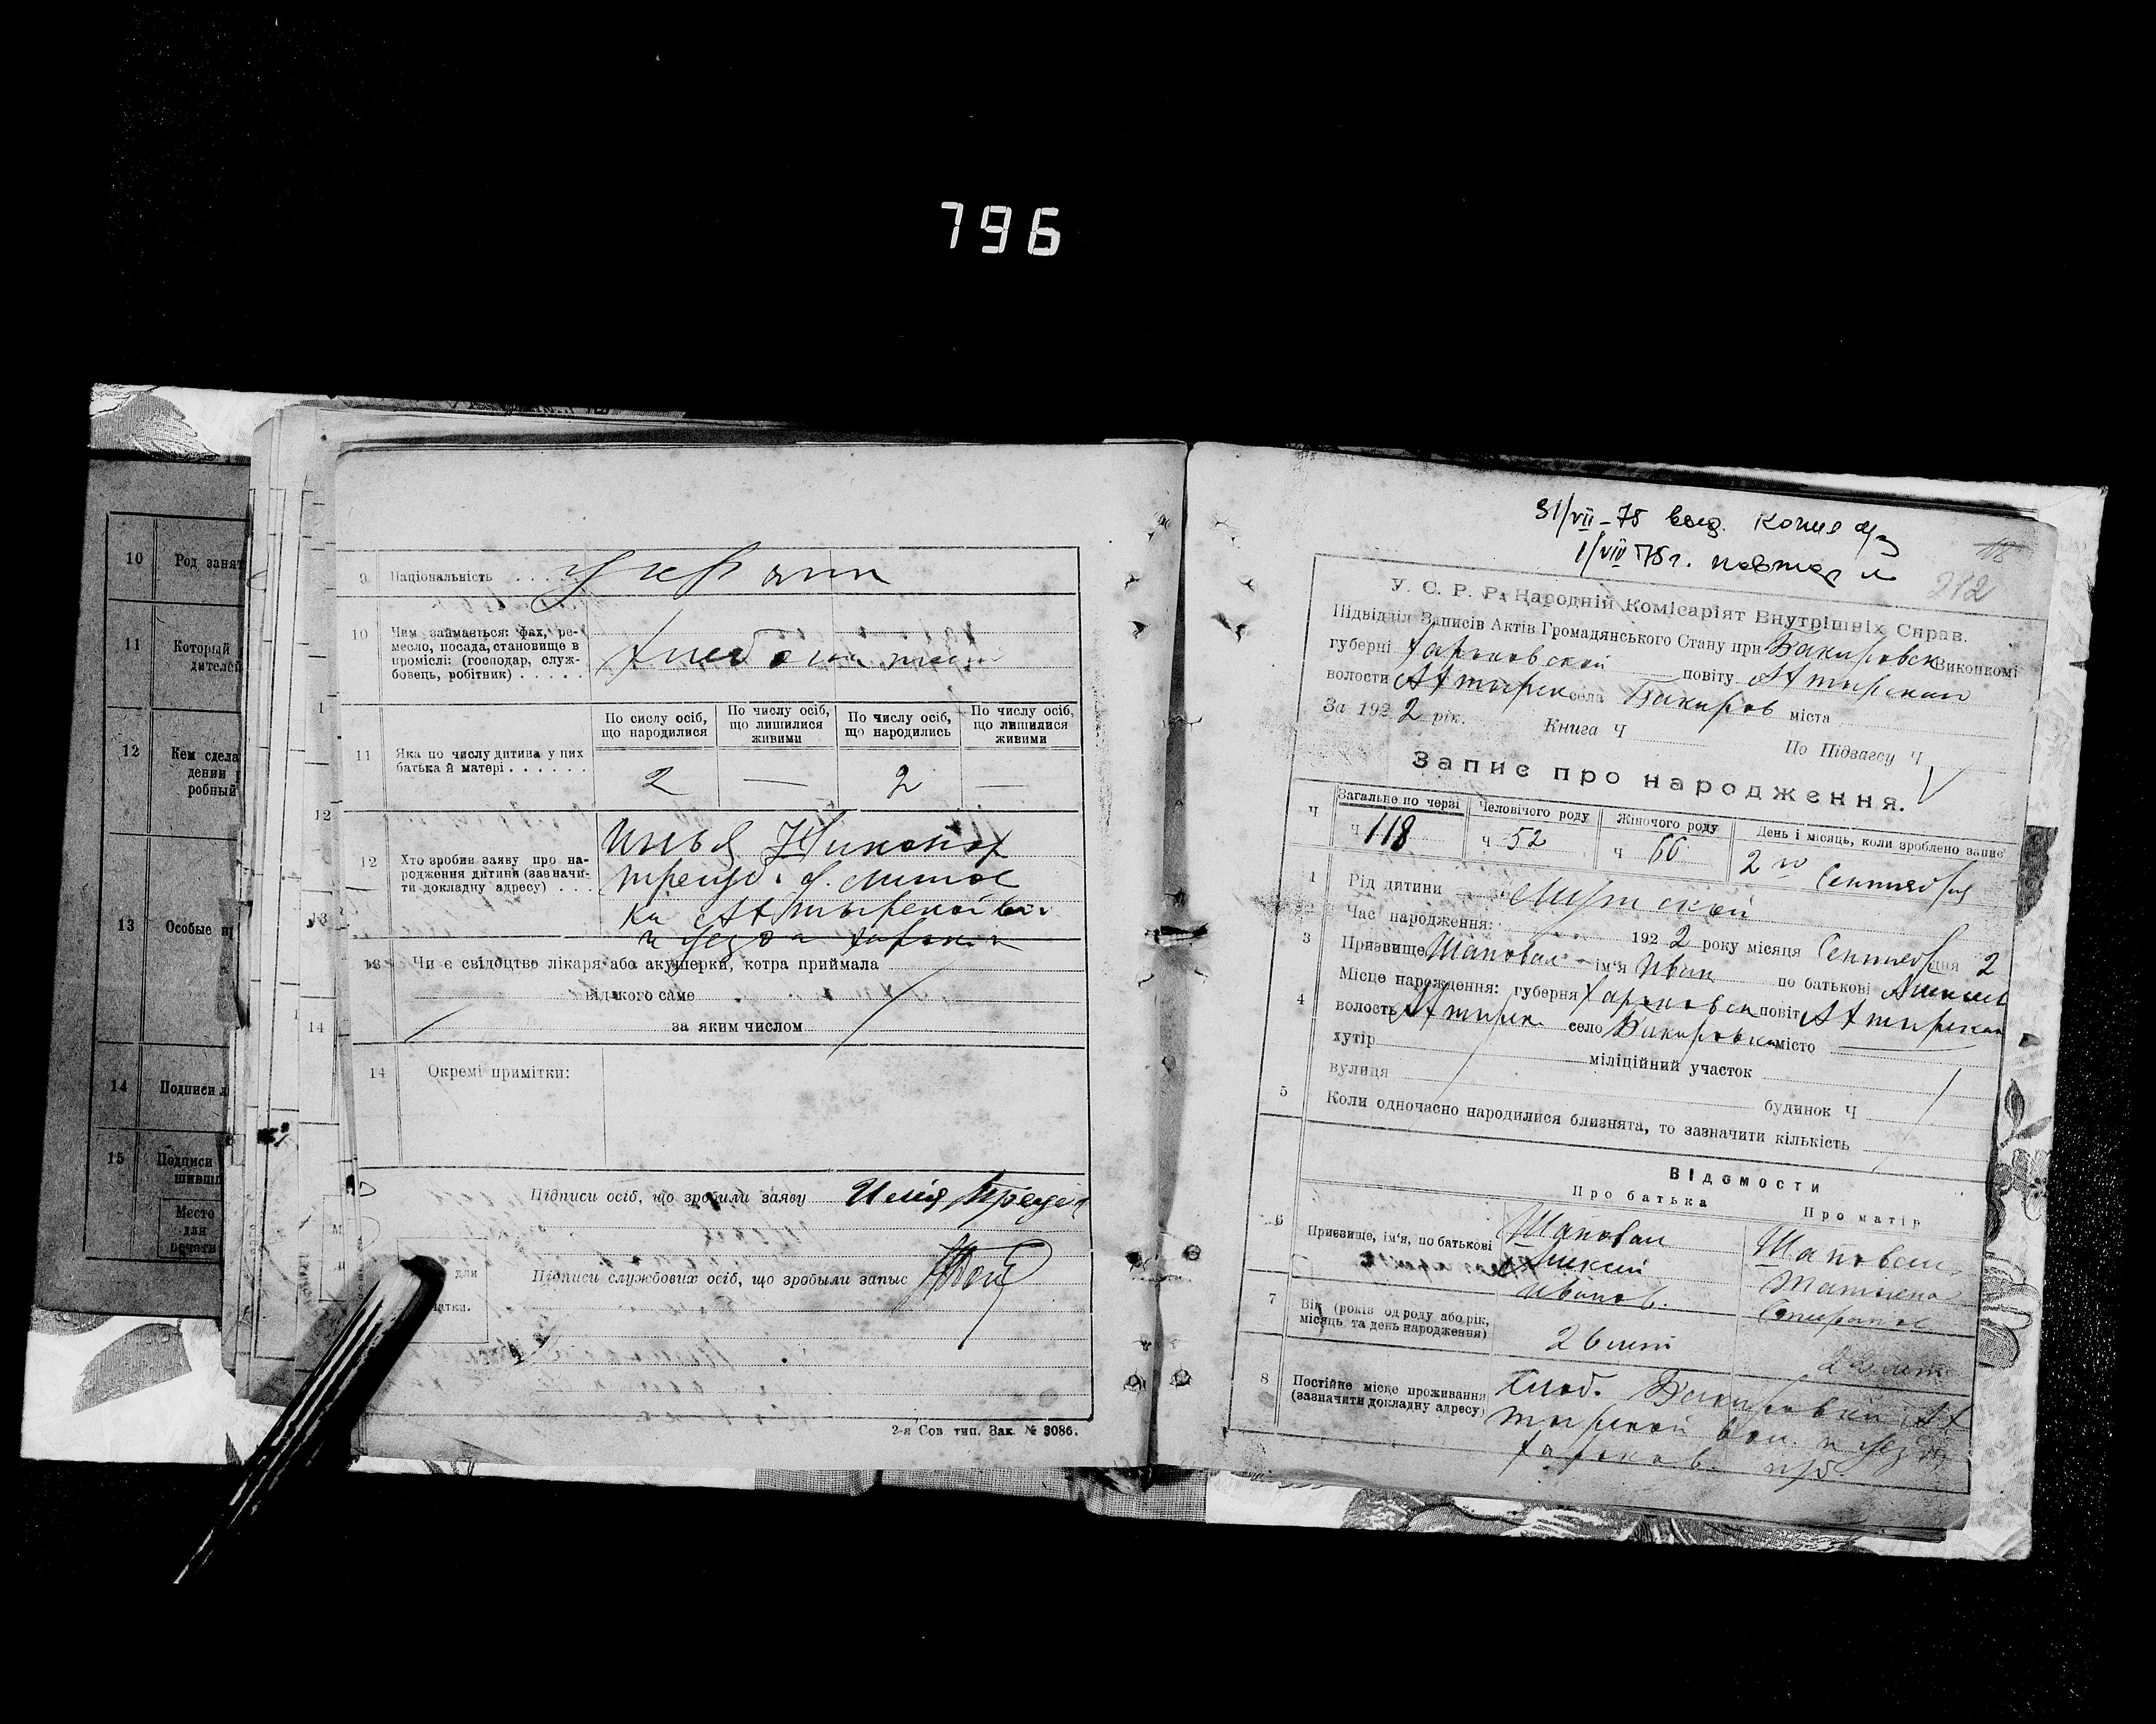 796
10 Род занят
11 Который
дителей
12 Кем сдела
дении
робный
13 Особые пр
14 Подписи л
15 Подписи
шивши
Место
для
печати
9 Національність . . . . украин
10 Чим займається: фах, ре-
месло, посада, становище в
промісLі: (господар, служ-
бовець, робітник) . . . . .
Хлебопаш
11 Яка по числу дитина у них
батька й матері . . . . . .
По сислу осіб, що народилися
По числу осіб, що лишилися живими
По числу осіб, що народились
По числу осіб, що лишилися живими
2 — 2 —
12 Хто зробив заяву про на-
родження дитини (зазначи-
ти докладну адресу) . . .
Илья Никонор
ка Ахтырской
и уезда Харьк
13 Чи є свідоцтво лікаря або акушерки, котра приймала
від кого саме
за яким числом
14 Окремі примітки:
Підписи осіб, що зробили заяву Илія
Підписи службових осіб, що зробыли запыс
для
чатки.
2-я Сов. тип. Зак. № 3086.
31/VII-75 выд. копия
1/VIII 75 г. повтор
18
212
У. С. Р. Р. Народній Комісаріят Внутрішніх Справ.
Підвідділ Записів Актів Громадянського Стану при Бакировск Виконкомі
губерні Харьковской повіту Ахтирской
волости Ахтирск села Бакиров міста
За 1922 рік. Книга Ч По Підзагсу Ч
Запис про народження.
Ч Загальне по черзі Человічого роду Жіночого роду День і місяць, коли зроблено запис
ч 118 ч 52 ч 66 2го Сентября
1 Рід дитини Мужской
Час народження: 1922 року місяця Сентября дня 2
3 Призвище Шаповал ім'я Иван по батькові Алексее
4 Місце народження: губерня Харьковск повіт Ахтирскаи
волость Ахтирск. село Бакировка місто
хутір міліційний участок
вулиця будинок Ч
5 Коли одночасно народилися близнята, то зазначити кількість
Відомости
Про батька Про матір
6 Призвище, ім'я, по батькові
Шаповал
Алексей
Иванов.
Шаповал
Татіяна
7 Вік (років од роду або рік,
місяць та день народження)
26 лет
22 лет
8 Постійне місце проживання
(зазначити докладну адресу)
Слоб. Бакировки Ах
тирской вол. и уезда
Харьков. губ.